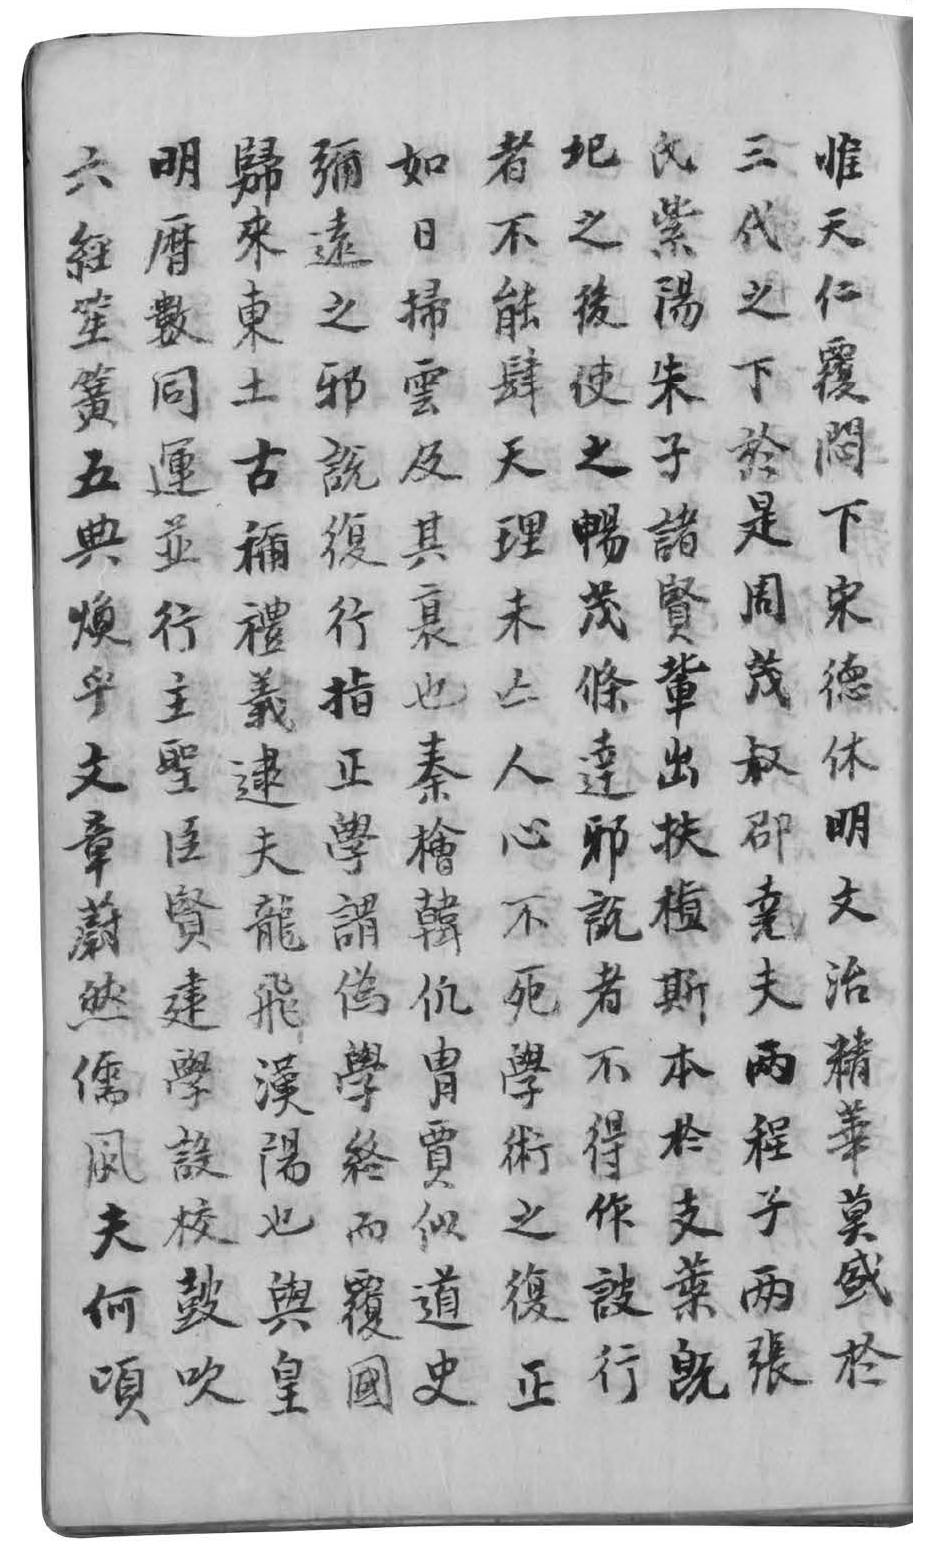 惟天仁覆閔下宋德休明文治精華莫盛於
三代之下於是周茂叔邵堯夫兩程子兩張
氏紫陽朱子諸賢輩出扶植斯本於支葉旣
圮之後使之暢茂條達邪說者不得作詖行
者不能肆天理未亡人心不死學術之復正
如日掃雲及其衰也秦檜韓侂胄賈似道史
彌遠之邪說復行指正學謂僞學終而覆國
歸來東土古稱禮義逮夫龍飛漢陽也與皇
明曆數同運並行主聖臣賢建學設校鼓吹
六經笙簧五典煥乎文章蔚然儒風夫何頃